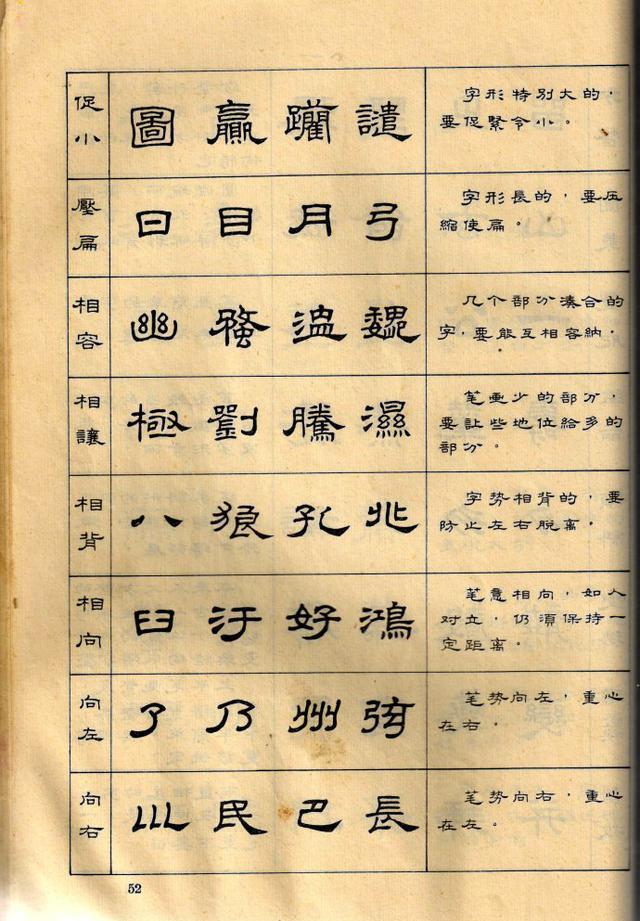 促小
圖 躣 譴
字形特别大的,
要促緊令小。
壓扁
日 目 月 弓
字形長的,要压
縮使扁。
相容
幽 魏
几个部分湊合的
字,要能互相容納.
相讓
極 劉 騰 濕
笔画少的部分,
要让些地位給多的
部分。
相背
八 狼 孔 兆
字势相背的,要
防止左右脱离。
相向
臼 汙 好 鴻
笔意相向,如人
对立,仍須保持一
定距离。
向左
了 乃 州 弦
笔势向左,重心
在右。
向右
民 巴 長
笔势向右,重心
在左。
52